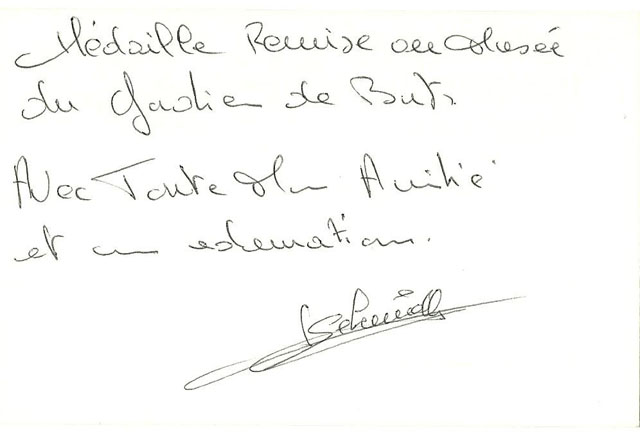 Médaille Remise au Musée
du Gardien de Buts
Avec Toute Mon Amitié
et mon admiration.